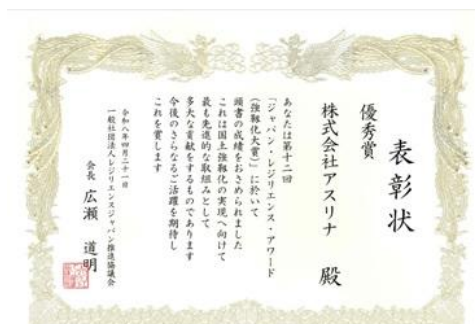 表彰状
優秀賞
株式会社アスリナ 殿
あなたは第十二回
「ジャパン・レジリエンス・アワード
（強靱化大賞）」に於いて
頭書の成績をおさめられました
これは国土強靱化の実現へ向けて
最も先進的な取組みとして
多大な貢献をするものであります
今後のさらなるご活躍を期待し
これを賞します
令和八年四月二十一日
一般社団法人レジリエンスジャパン推進協議会
会長 広瀬 道明